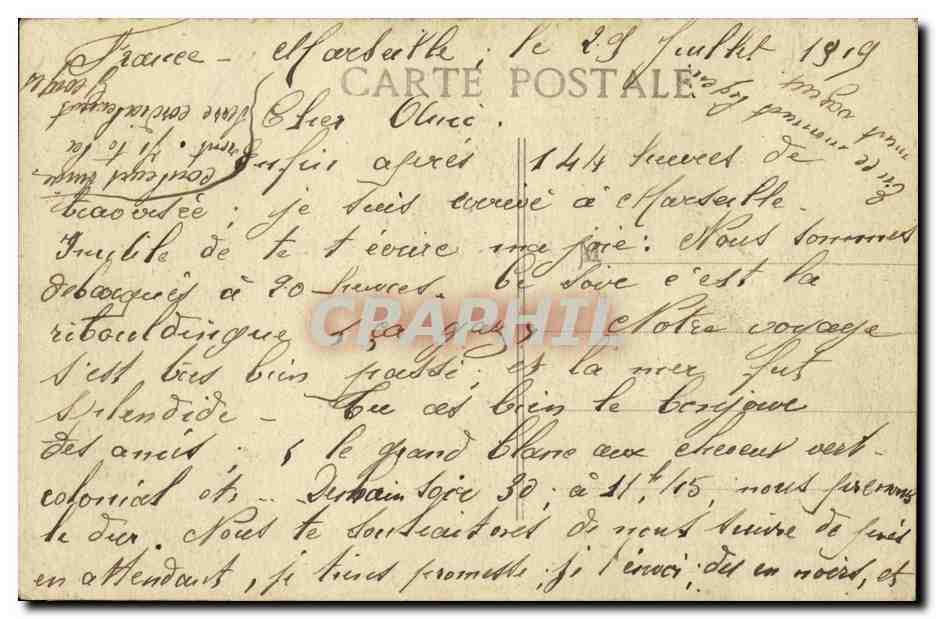 France - Marseille, le 29 Juillet 1919
CARTE POSTALE
Cher Ami.
Enfin après 144 heures de
traversée; je suis arrivé à Marseille.
Inutile de te t'écrire ma joie: Nous sommes
debarqués à 20 heures. Ce soir c'est la
ribouldingue, ça gaz, Notre voyage
s'est très bien passé, et la mer fut
splendide - Tu as bien le bonjour
des amis; le grand blanc aux cheveux vert-
colonial etc... Demain soir 30, à 11h,15, nous prenons
le dur. Nous te souhaitons de nous suivre de près
en attendant, je tiens promesse, je t'envoi, des en noirs, et
CRAPHIL